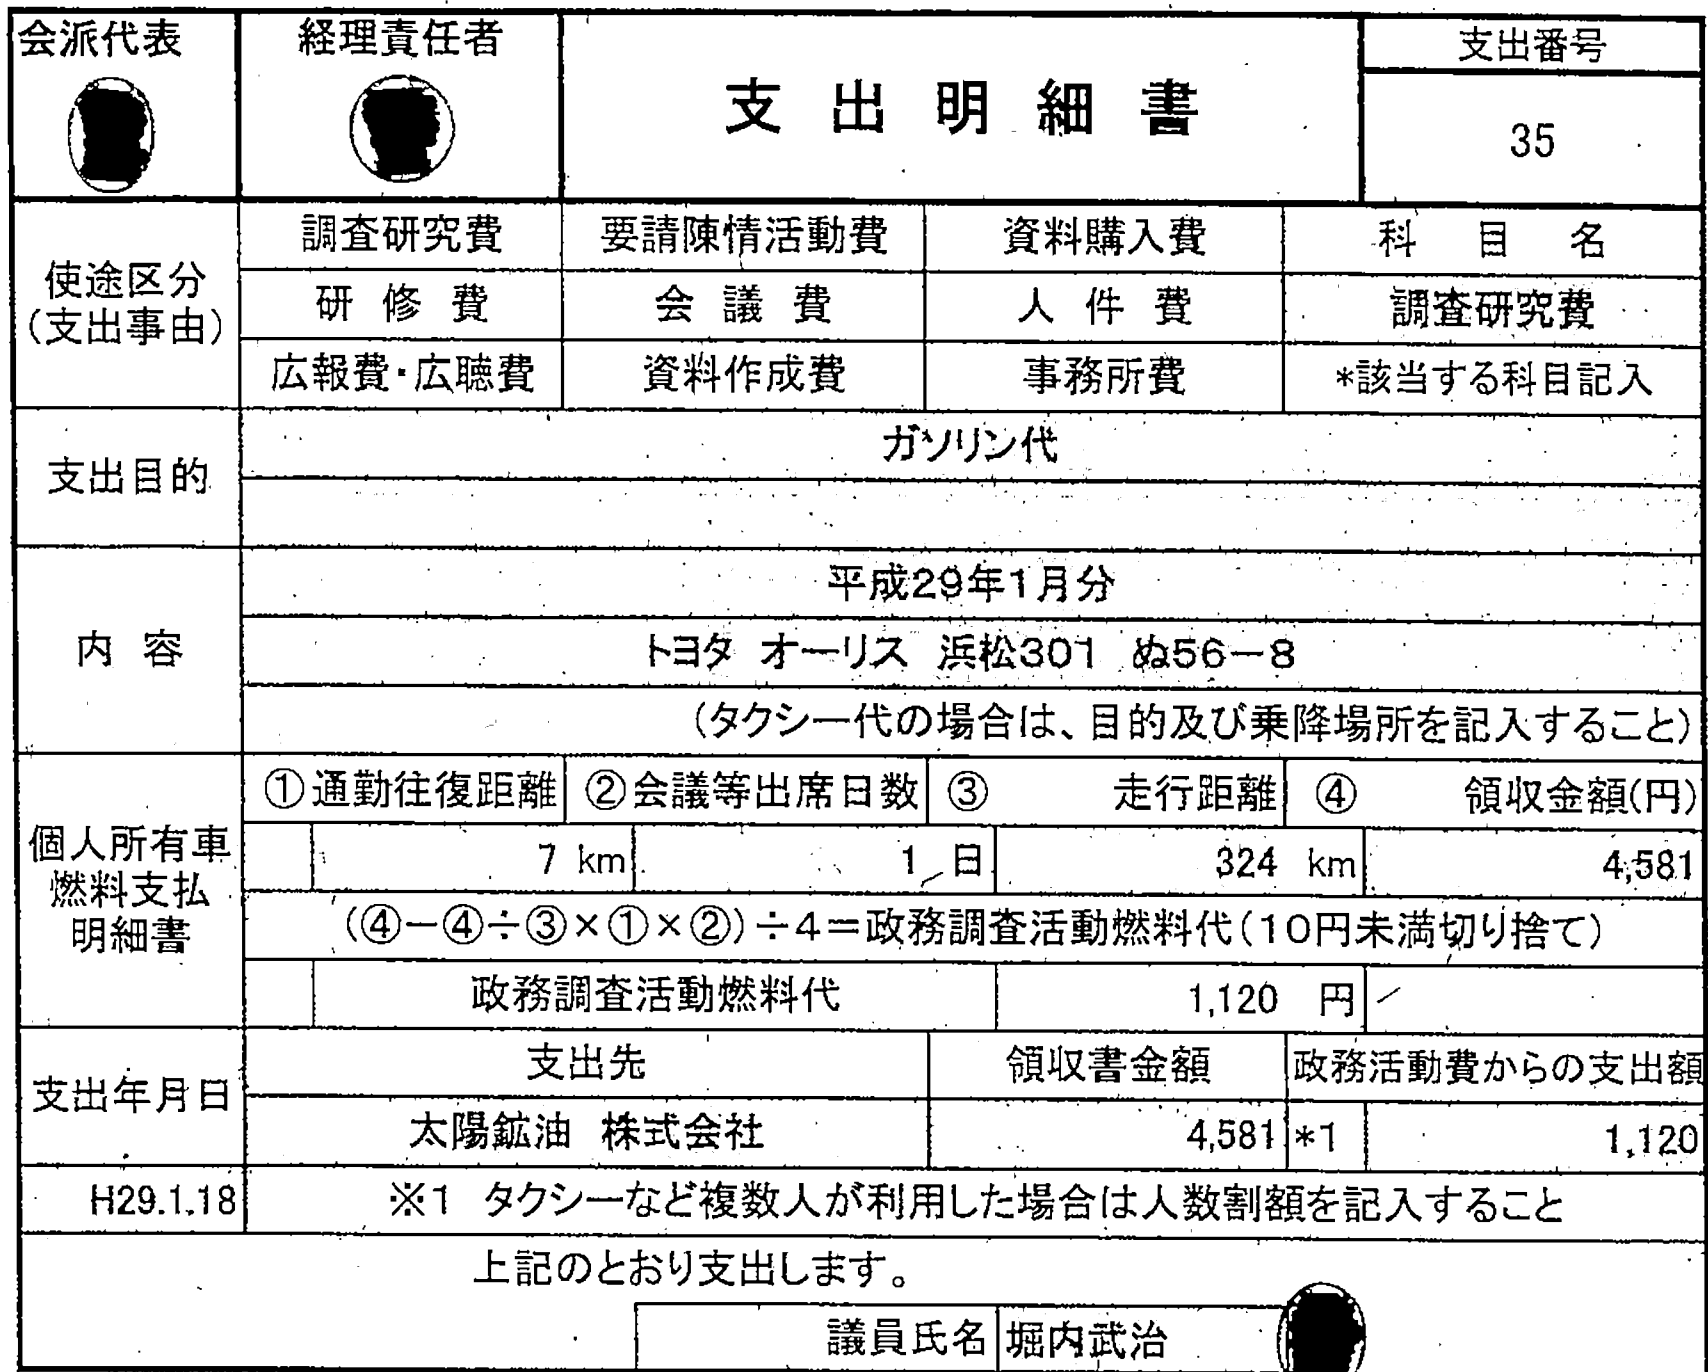 会派代表
経理責任者
支出明細書
支出番号
35
使途区分
(支出事由)
調査研究費 要請陳情活動費 資料購入費 科目名
研修費 会議費 人件費 調査研究費
広報費・広聴費 資料作成費 事務所費 *該当する科目記入
支出目的
ガソリン代
内容
平成29年1月分
トヨタ オーリス 浜松301 ぬ56-8
(タクシー代の場合は、目的及び乗降場所を記入すること)
個人所有車
燃料支払
明細書
①通勤往復距離 ②会議等出席日数 ③ 走行距離 ④ 領収金額(円)
7 km 1 日 324 km 4,581
(④-④÷③×①×②)÷4=政務調査活動燃料代(10円未満切り捨て)
政務調査活動燃料代 1,120 円
支出年月日
支出先 領収書金額 政務活動費からの支出額
太陽鉱油 株式会社 4,581 *1 1,120
H29.1.18 ※1 タクシーなど複数人が利用した場合は人数割額を記入すること
上記のとおり支出します。
議員氏名 堀内武治